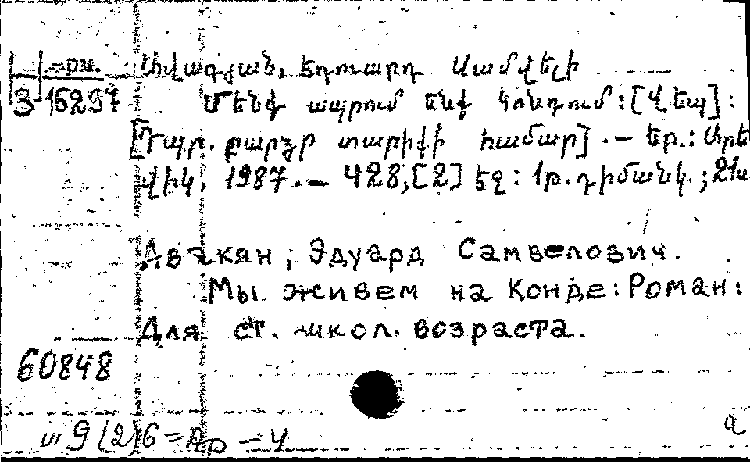 արմ. Ավագյան, Էդուարդ Սամվելի
3-16297 Մենք ապրում ենք Կոնդում: [Վեպ]:
[Դպր. բարձր տարիքի համար] .— Եր.: Արև
վիկ, 1987.— 428,[2] էջ: 1թ. դիմանկ.; 21ս
Авакян, Эдуард Самвелович.
Мы живем на Конде: Роман:
Для ст. школ. возраста.
60848
ш 9(2)6=Ар—4 а